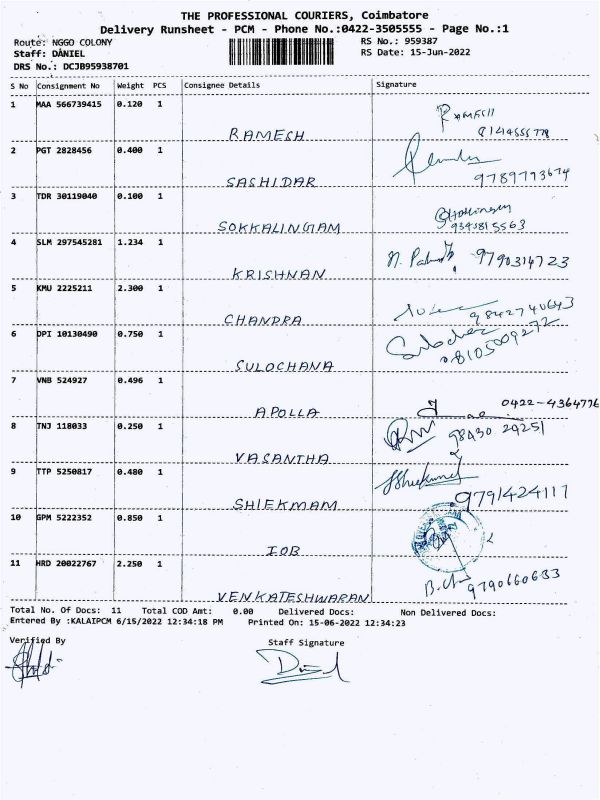 THE PROFESSIONAL COURIERS, Coimbatore
Delivery Runsheet - PCM - Phone No.:0422-3505555 - Page No.:1
Route: NGGO COLONY
RS No.: 959387
Staff: DANIEL
RS Date: 15-Jun-2022
DRS No.: DCJB95938701
S No Consignment No Weight PCS Consignee Details Signature
1 MAA 566739415 0.120 1
RAMESH
RAMESH
2 PGT 2828456 0.400 1
SASHIDAR 9789793674
3 TDR 30119040 0.100 1
SOKKALINGAM 9345815563
4 SLM 297545281 1.234 1
KRISHNAN 9790314723
5 KMU 2225211 2.300 1
CHANDRA 9842740643
6 DPI 10130490 0.750 1
SULOCHANA 8105009272
7 VNB 524927 0.496 1
APOLLA 0422-4364776
8 TNJ 118033 0.250 1
VASANTHA 98430 29251
9 TTP 5250817 0.480 1
SHIEKMAM 9791424117
10 GPM 5222352 0.850 1
IOB
11 HRD 20022767 2.250 1
VENKATESHWARAN 9790660633
Total No. Of Docs: 11 Total COD Amt: 0.00 Delivered Docs: Non Delivered Docs:
Entered By :KALAIPCM 6/15/2022 12:34:18 PM Printed On: 15-06-2022 12:34:23
Verified By
Staff Signature